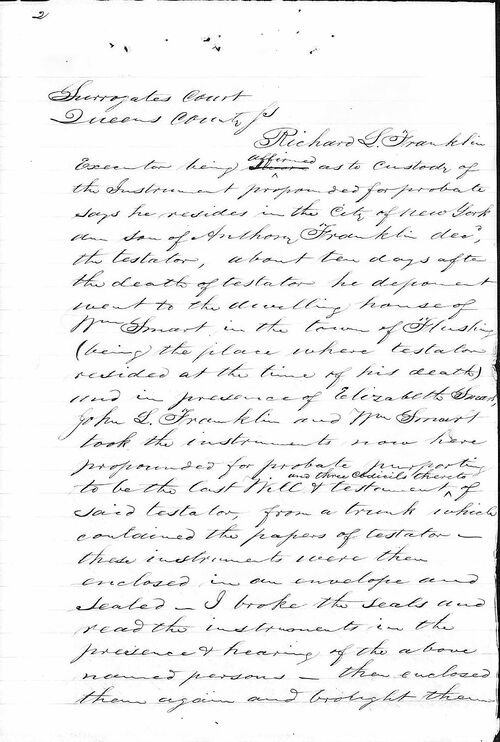 2
Surrogates Court
Queens County ss
Richard L. Franklin
Executor being affirmed as to custody of
the Instrument propounded for probate
says he resides in the City of New York
am son of Anthony Franklin decd,
the testator, about ten days after
the death of testator he deponent
went to the dwelling house of
Wm Smart in the town of Flushing
(being the place where testator
resided at the time of his death)
and in presence of Elizabeth Smart,
John L. Franklin and Wm Smart
took the instruments now here
propounded for probate purporting
to be the last Will & testament, and three Codicils thereto of
said testator, from a trunk which
contained the papers of testator —
these instruments were then
enclosed in an envelope and
sealed — I broke the seals and
read the instruments in the
presence & hearing of the above
named persons — then enclosed
them again and brought them